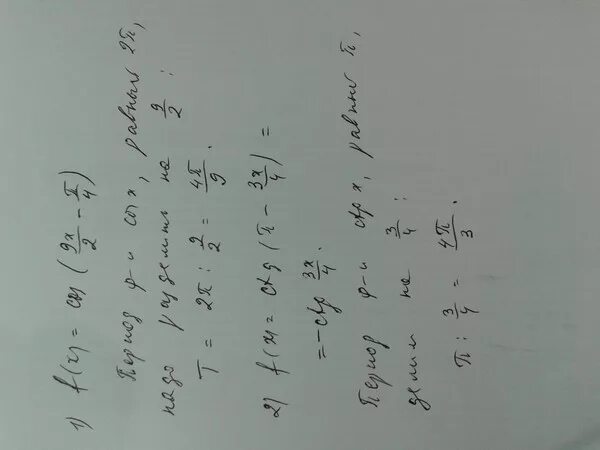 1) f(x) = cos (9x/2 - π/4)
Период ф-и cos x, равный 2π,
надо разделить на 9/2 :
T = 2π : 9/2 = 4π/9 .
2) f(x) = ctg (π - 3x/4) =
= -ctg 3x/4 .
Период ф-и ctg x, равный π,
делим на 3/4 :
π : 3/4 = 4π/3